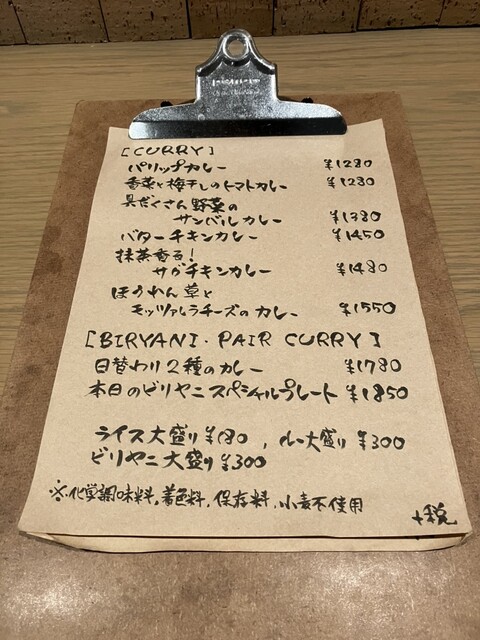 [CURRY]
パリップカレー ¥1280
香菜と梅干しのトマトカレー ¥1280
具だくさん野菜の
サンバルカレー ¥1380
バターチキンカレー ¥1450
抹茶香る!
サグチキンカレー ¥1480
ほうれん草と
モッツァレラチーズのカレー ¥1550
[BIRYANI・PAIR CURRY]
日替わり2種のカレー ¥1780
本日のビリヤニスペシャルプレート ¥1850
ライス大盛り¥180, ルー大盛り ¥300
ビリヤニ大盛り¥300
※化学調味料,着色料,保存料,小麦不使用
+税